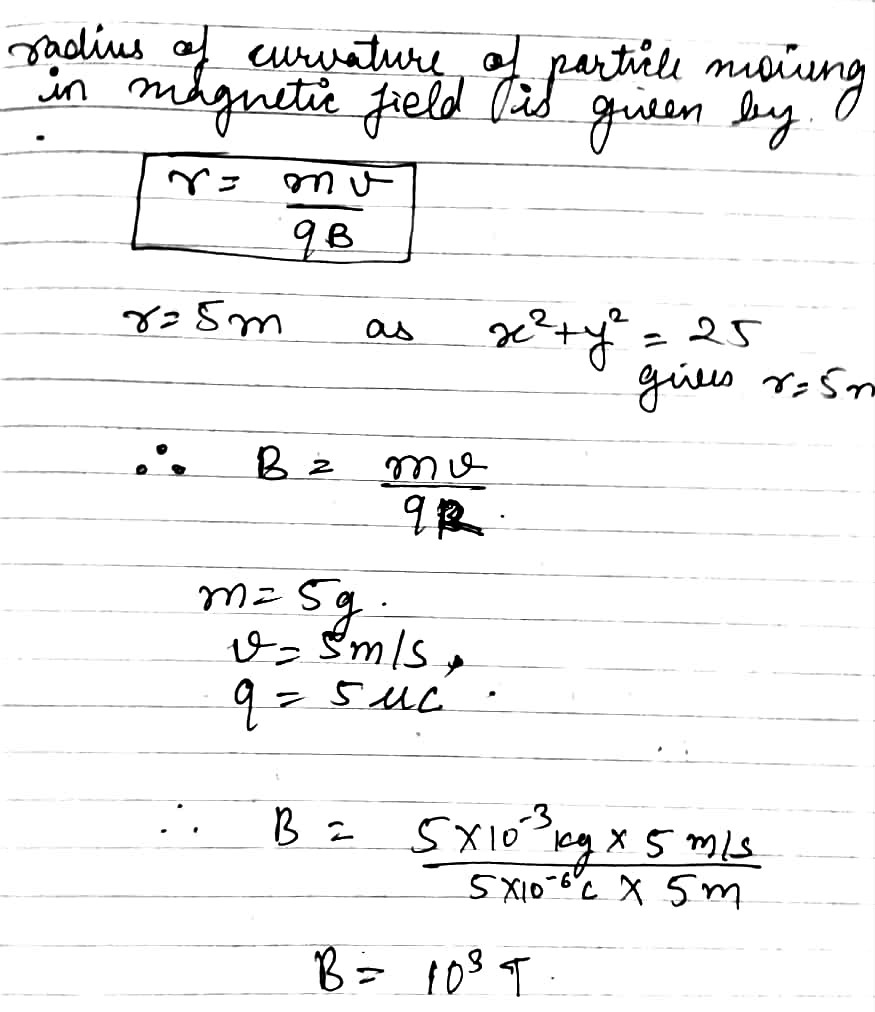 radius of curvature of particle moving
in magnetic field is given by.
r = mv / qB
r = 5m as x² + y² = 25
gives r = 5m
∴ B = mv / qR.
m = 5g.
v = 5m/s,
q = 5 uc.
∴ B = 5×10⁻³ kg × 5 m/s / 5×10⁻⁶ c × 5m
B = 10³ T.